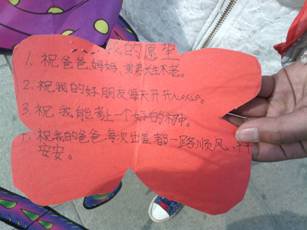 我的愿望
1. 祝爸爸,妈妈,
2. 祝我的好朋友每天开开心心。
3. 祝我能考上一个好的初中。
祝我的爸爸,每次出差都一路顺风,平
安安。